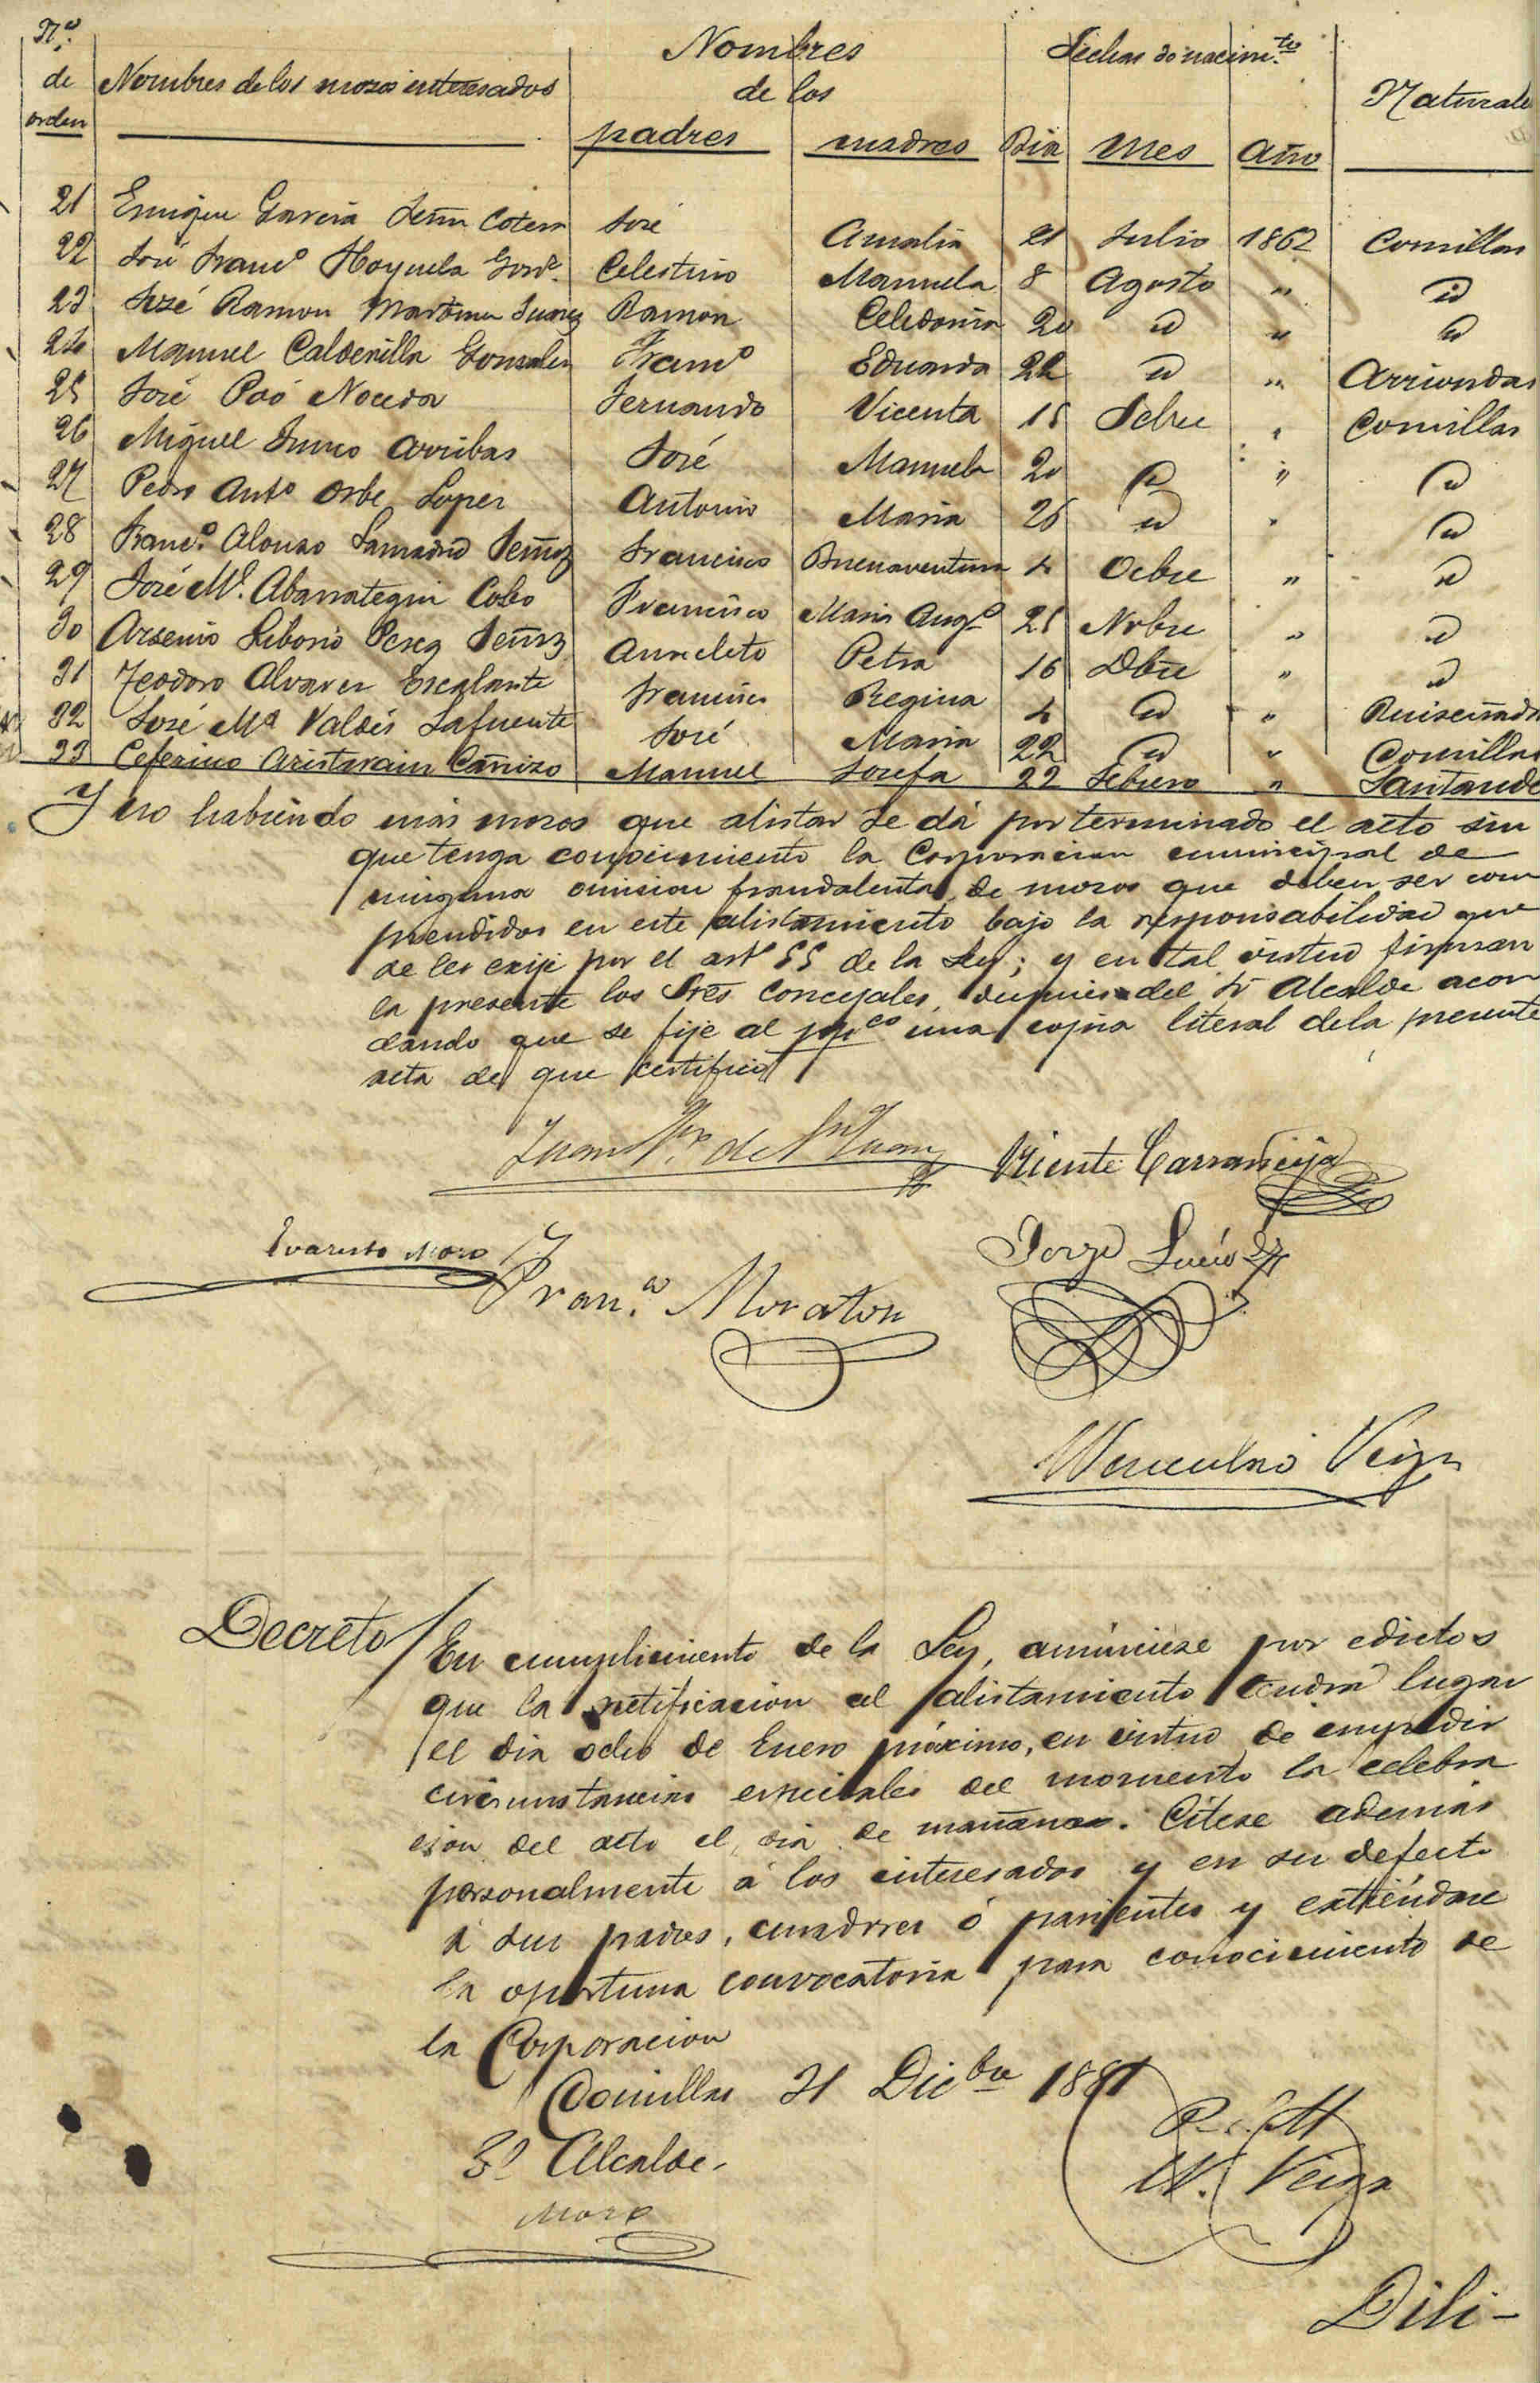 Nº
de
orden
Nombres de los mozos interesados
Nombres
de los
padres madres
Fechas de nacim.to
Dia Mes Año
Naturale
21 Enrique Garcia Fern Cotera José Amalia 21 Julio 1862 Comillas
22 José Franco Hoyuela Gonz. Celestino Manuela 8 Agosto " id
23 José Ramon Martinez Juarez Ramon Celedonia 20 id " id
24 Manuel Calderilla Gonzalez Franco Eduarda 22 id " Arriondas
25 José Poó Noceda Fernando Vicenta 15 Sebre " Comillas
26 Miguel Junco Arribas José Manuela 20 id " id
27 Pedro Anto Orbe Lopez Antonio Maria 26 id " id
28 Franc.o Alonso Lamadrid Francisco Buenaventura 4 Ocbre " id
29 José Mª. Abarrategui Cobo Francisco Maria Aug.a 25 Nvbre " id
30 Arsenio Liborio Perez Anacleto Petra 16 Dbre " id
31 Teodoro Alvarez Escalante Francisco Regina 4 id " Ruiseñada
32 José Mª Valdés Lafuente José Maria 22 id " Comillas
33 Ceferino Aristarain Cañizo Manuel Josefa 22 Febrero " Santande
Y no habiendo más mozos que alistar se dá por terminado el acto sin
que tenga conocimiento la Corporacion municipal de
ninguna omision fraudulenta de mozos que deben ser com
prendidos en este alistamiento bajo la responsabilidad que
se les exije por el artº 55 de la Ley; y en tal virtud firman
la presente los Sres Concejales, despues del Sr Alcalde acor
dando que se fije al puco una copia literal de la presente
acta de que certifico
Juan de Sn Juan
Vicente Carranceja
Evaristo Moro
Fran.co Moraton
Jorge Lucio
Wenceslao Veiga
Decreto / En cumplimiento de la Ley, anúnciese por edictos
que la retificacion del alistamiento tendrá lugar
el dia ocho de Enero próximo, en virtud de impedir
circunstancias especiales del momento la celebra
cion del acto el dia de mañana. Cítese además
personalmente á los interesados y en su defecto
á sus padres, curadores ó parientes y extiéndase
la oportuna convocatoria para conocimiento de
la Corporacion
Comillas 31 Dicbre 1881
El Alcalde.
Moro
W. Veiga
Dili-